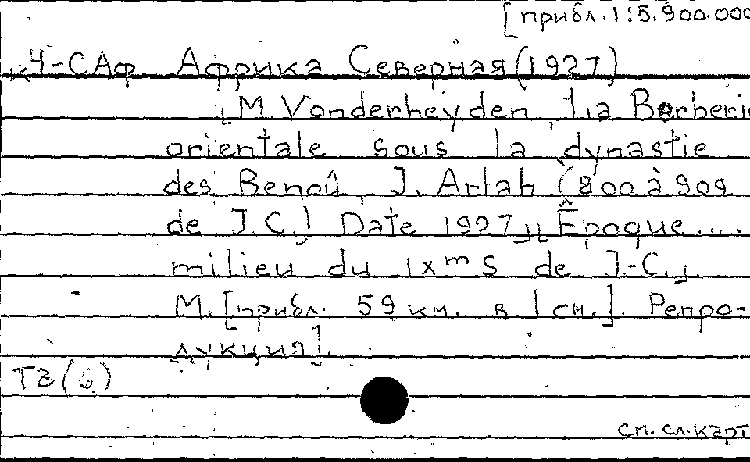 [прибл. 1:5.900.000
Ч-САф Африка Северная (1927)
M. Vonderheyden. La Berberie
orientale sous la dynastie
des Benoû J. Arlab (800 à 909
de J.C.) Date 1927 „ Époque....
milieu du IXᵐ S de J-C.„
М. [прибл. 59 км. в 1 см.]. Репро-
дукция].
ТЗ (6)
см. сл. карт